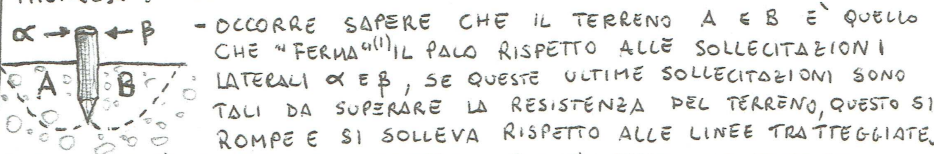 α → ← β
A B
- OCCORRE SAPERE CHE IL TERRENO A E B E' QUELLO
CHE "FERMA"(1) IL PALO RISPETTO ALLE SOLLECITAZIONI
LATERALI α E β, SE QUESTE ULTIME SOLLECITAZIONI SONO
TALI DA SUPERARE LA RESISTENZA DEL TERRENO, QUESTO SI
ROMPE E SI SOLLEVA RISPETTO ALLE LINEE TRATTEGGIATE.